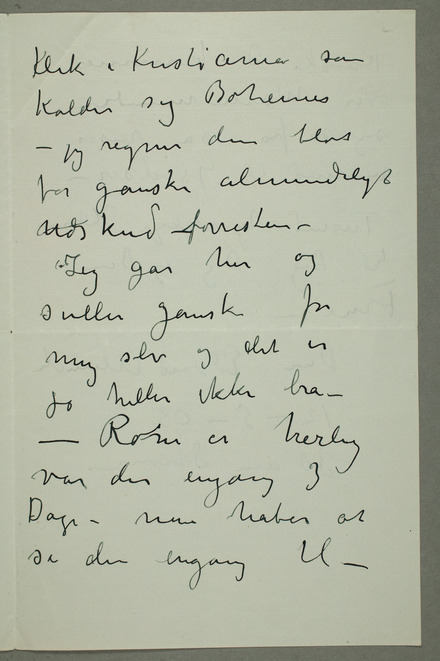 Klik i Kristiania som
kalder sig Bohemes
– jeg regner dem blot
for ganske almindeligt
Udskud forresten –
Jeg går her og
suller ganske for
mig selv og det er
jo heller ikke bra –
– Rom er herlig
var der engang 3
Dage – men håber at
se den engang til –